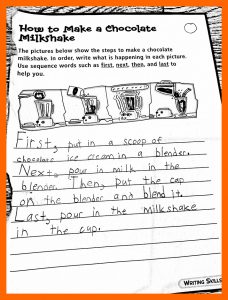 How to Make a Chocolate
Milkshake
The pictures below show the steps to make a chocolate
milkshake. In order, write what is happening in each picture.
Use sequence words such as first, next, then, and last to
help you.
First, put in a scoop of
chocolate ice cream in a blender.
Next, pour in milk in the
blender. Then, put the cap
on the blender and blend it.
Last, pour in the milkshake
in the cup.
Writing Skills